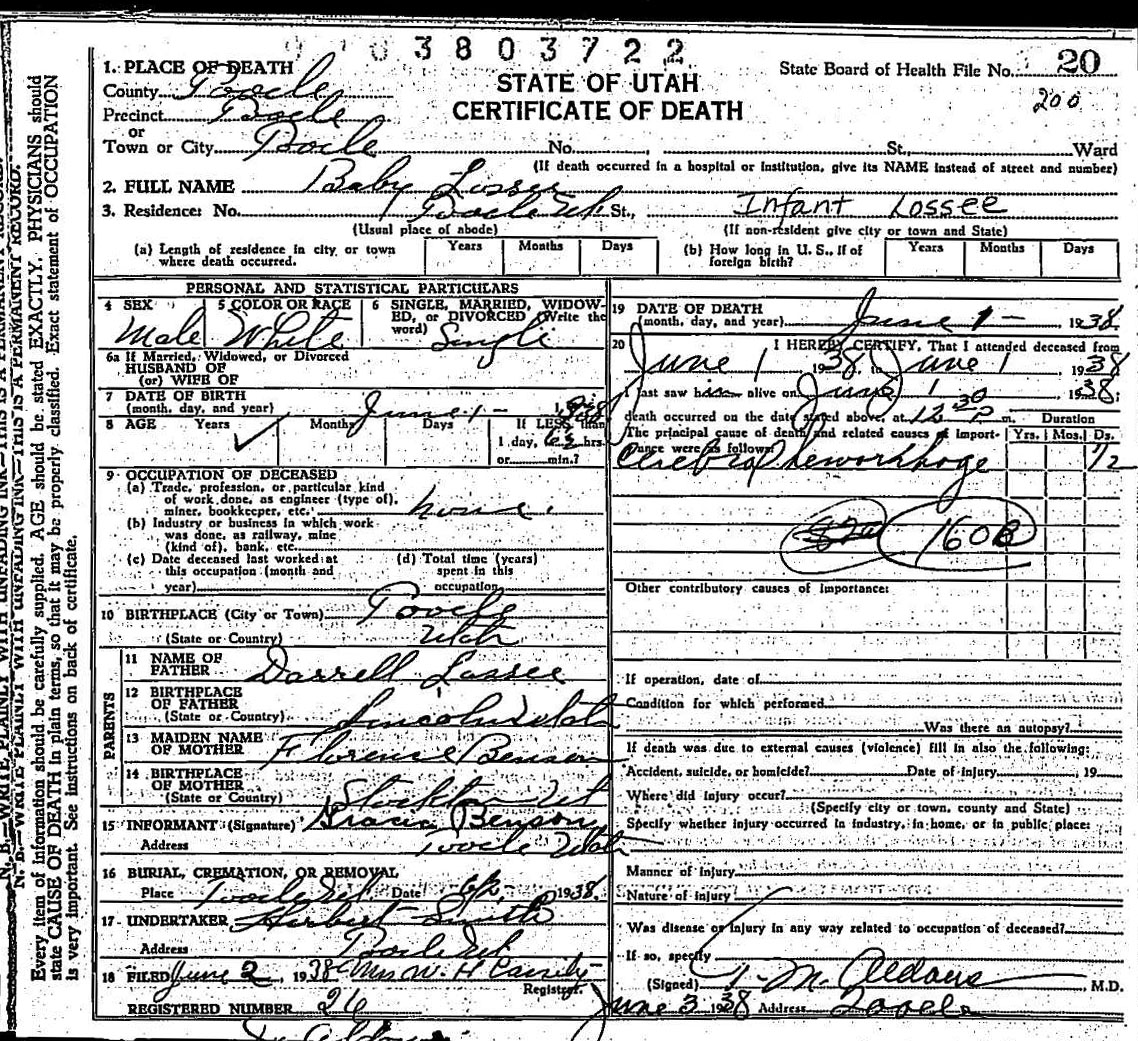 3803722
1. PLACE OF DEATH
STATE OF UTAH
CERTIFICATE OF DEATH
State Board of Health File No. 20
200
County Tooele
Precinct Tooele
or
Town or City Tooele No. St., Ward
(If death occurred in a hospital or institution, give its NAME instead of street and number)
2. FULL NAME Baby Lossee
3. Residence: No. Tooele Ut. St., Infant Lossee
(Usual place of abode) (If non-resident give city or town and State)
(a) Length of residence in city or town where death occurred. Years Months Days
(b) How long in U. S., if of foreign birth? Years Months Days
PERSONAL AND STATISTICAL PARTICULARS
4 SEX Male
5 COLOR OR RACE White
6 SINGLE, MARRIED, WIDOWED, or DIVORCED (Write the word) Single
6a If Married, Widowed, or Divorced
HUSBAND OF
(or) WIFE OF
7 DATE OF BIRTH
(month, day, and year) June 1 - 1938
8 AGE Years Months Days If LESS than
1 day, hrs.
or min.?
9 OCCUPATION OF DECEASED
(a) Trade, profession, or particular kind
of work done, as engineer (type of),
miner, bookkeeper, etc.
(b) Industry or business in which work
was done, as railway, mine
(kind of), bank, etc.
(c) Date deceased last worked at
this occupation (month and
year)
(d) Total time (years)
spent in this
occupation
10 BIRTHPLACE (City or Town) Tooele
(State or Country) Utah
PARENTS
11 NAME OF
FATHER Darrell Lossee
12 BIRTHPLACE
OF FATHER
(State or Country) Lincoln Utah
13 MAIDEN NAME
OF MOTHER Florence Benson
14 BIRTHPLACE
OF MOTHER
(State or Country) Stockton Ut
15 INFORMANT (Signature) Benson
Address Tooele Utah
16 BURIAL, CREMATION, OR REMOVAL
Place Tooele Ut Date 6/2 1938.
17 UNDERTAKER Herbert Smith
Address Tooele Ut
18 FILED June 2, 1938 Mrs W. H. Cassity
Registrar.
REGISTERED NUMBER 26
19 DATE OF DEATH
(month, day, and year) June 1 - 1938.
20 I HEREBY CERTIFY, That I attended deceased from
June 1, 1938, to June 1, 1938
I last saw him alive on June 1 1938;
death occurred on the date stated above, at 12 30 P m. Duration
The principal cause of death and related causes of importance were as follows: Yrs. Mos. Ds.
Cerebral hemorrhage 1/2
160B
Other contributory causes of importance:
If operation, date of
Condition for which performed
Was there an autopsy?
If death was due to external causes (violence) fill in also the following:
Accident, suicide, or homicide? Date of injury , 19
Where did injury occur?
(Specify city or town, county and State)
Specify whether injury occurred in industry, in home, or in public place:
Manner of injury
Nature of injury
Was disease or injury in any way related to occupation of deceased?
If so, specify
(Signed) M. Aldous M.D.
June 3 1938 Address Tooele
N. B.—WRITE PLAINLY WITH UNFADING INK—THIS IS A PERMANENT RECORD.
Every item of information should be carefully supplied. AGE should be stated EXACTLY. PHYSICIANS should
state CAUSE OF DEATH in plain terms, so that it may be properly classified. Exact statement of OCCUPATION
is very important. See instructions on back of certificate.